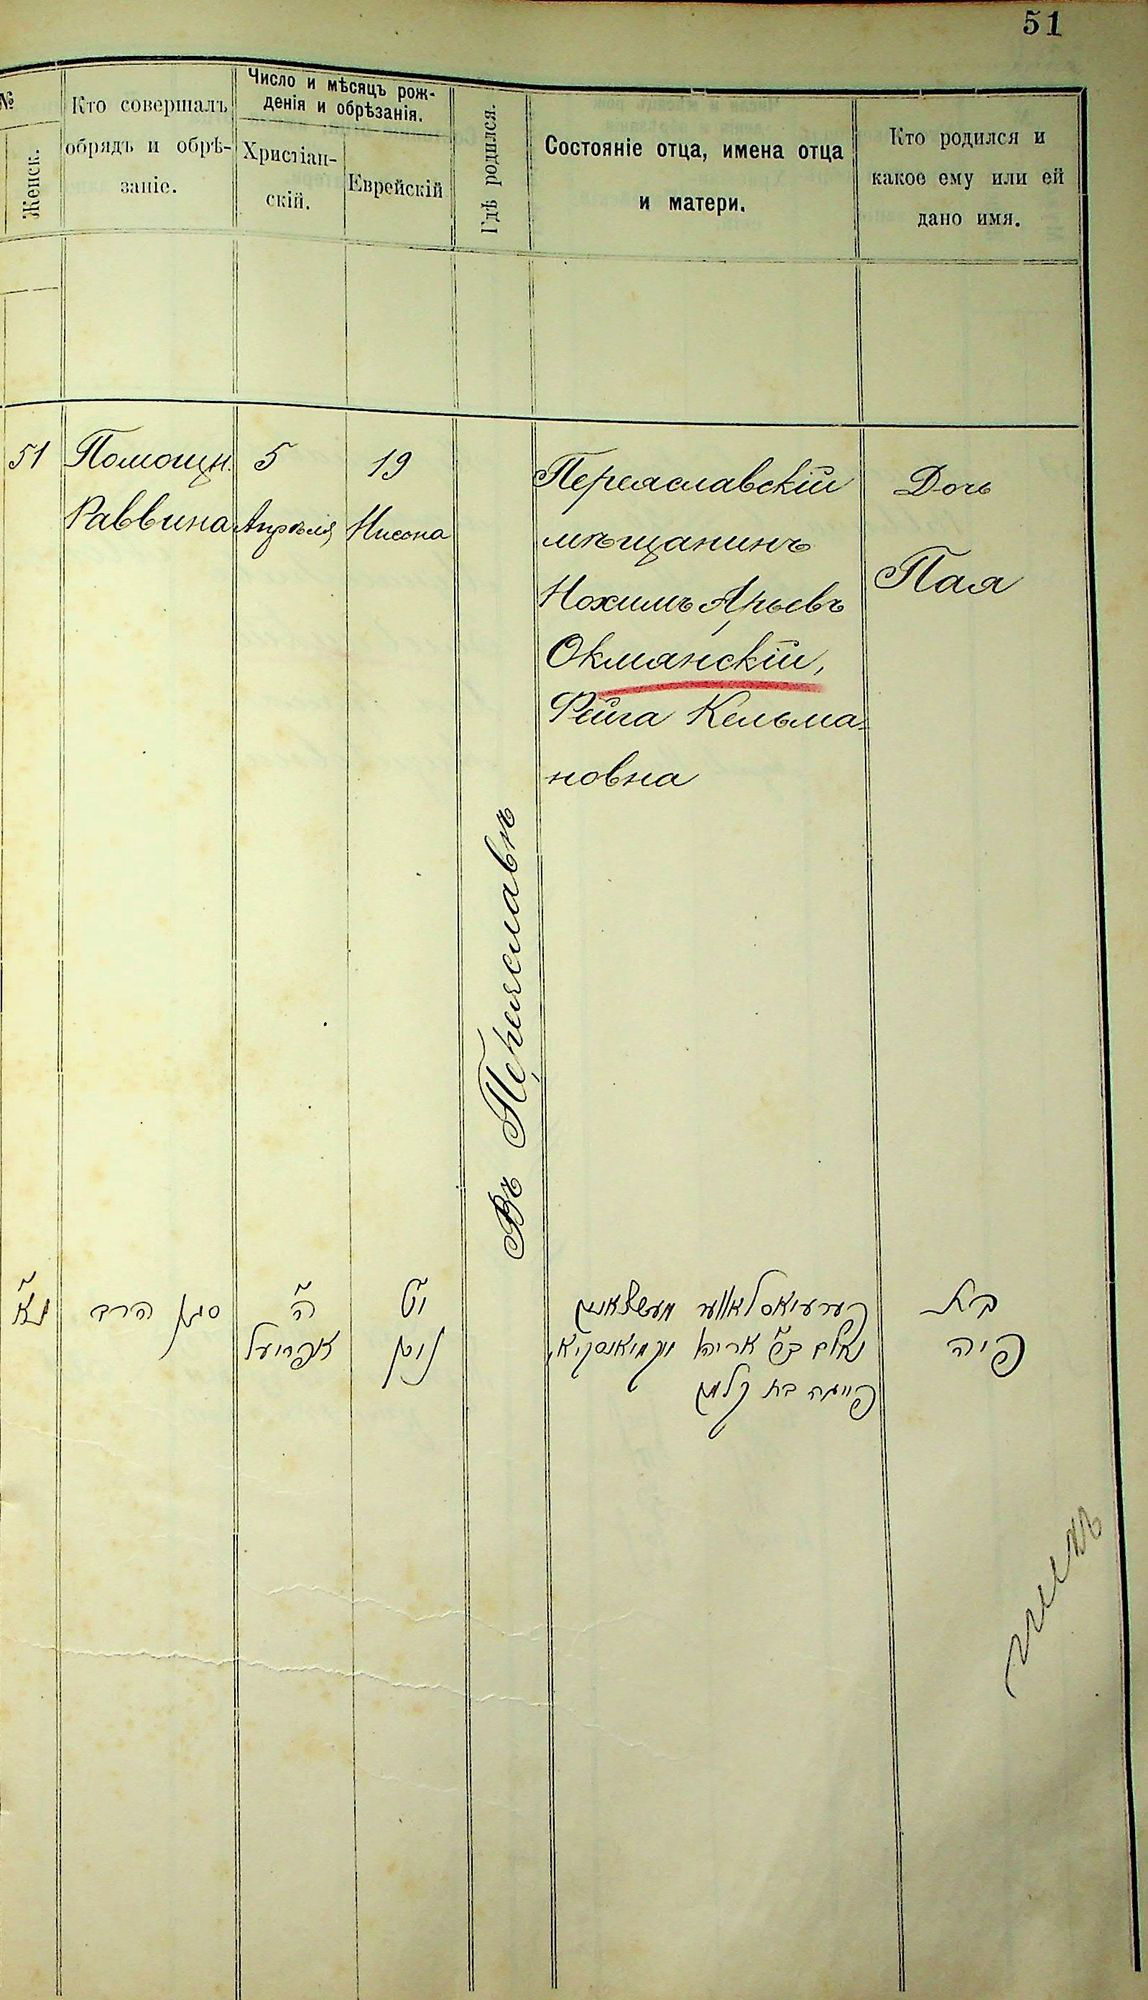 51
№
Женск.
Кто совершалъ
обрядъ и обрѣ-
заніе.
Число и мѣсяцъ рож-
денія и обрѣзанія.
Христіан-
скій.
Еврейскій
Гдѣ родился.
Состояніе отца, имена отца
и матери.
Кто родился и
какое ему или ей
дано имя.
51
Помощн.
Раввина
5
Апрѣля
19
Нисона
Въ Переяславѣ
Переяславскій
мѣщанинъ
Нохимъ Арьевъ
Окмянскій,
Фейга Кельма-
новна
Дочь
Пая
נ״א
סגן הרב
ה״
אפריעל
י״ט
ניסן
פערעיאסלאווער מעשצאנין
נחום ב״ר אריה אקמיאנסקיא,
פייגה בת קלמן
בת
פיה